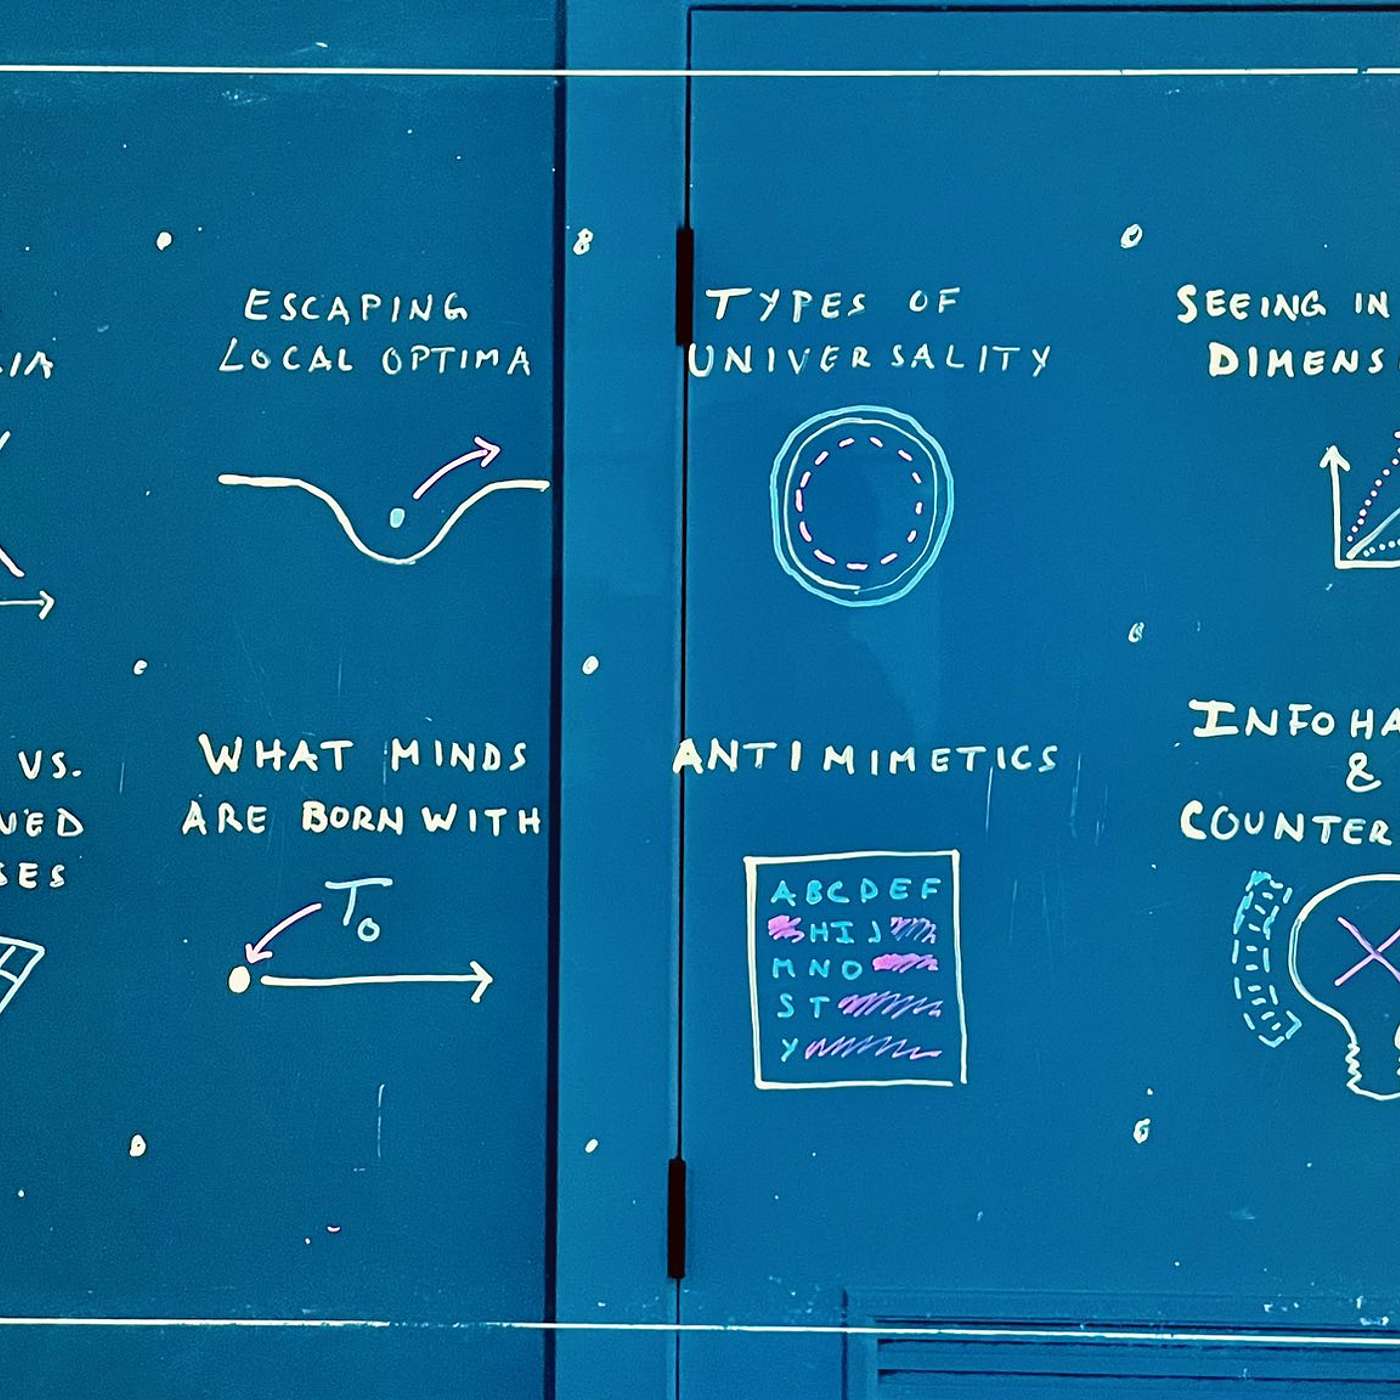 ESCAPING
LOCAL OPTIMA
TYPES OF
UNIVERSALITY
SEEING IN
VS.
WHAT MINDS
ARE BORN WITH
T₀
ANTIMIMETICS
ABCDEF
HIJ
MNO
ST
Y
&
COUNTER